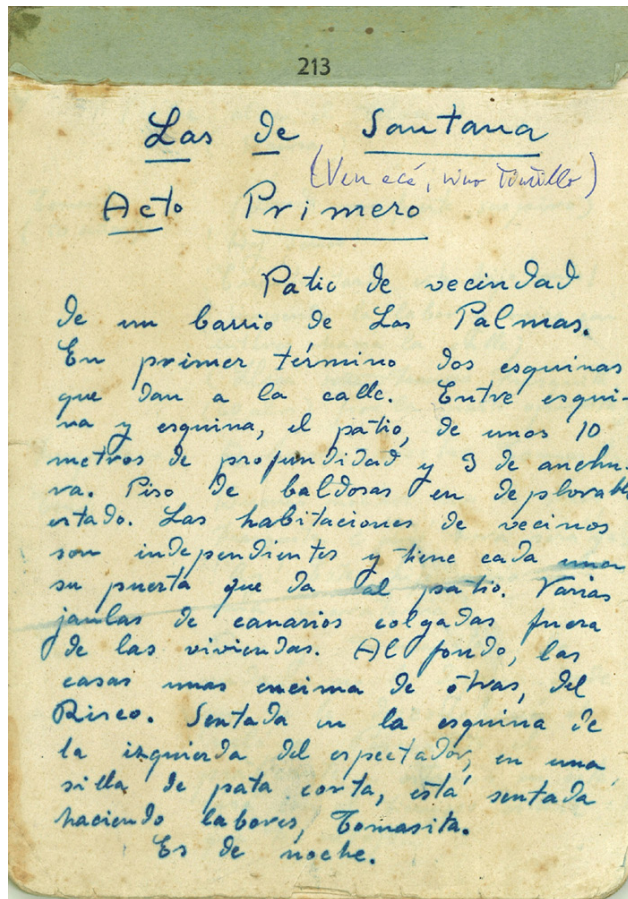 213
Las de Santana
(Ven acá, nino Tintillo)
Acto Primero
Patio de vecindad
de un barrio de Las Palmas.
En primer término dos esquinas
que dan a la calle. Entre esqui-
na y esquina, el patio, de unos 10
metros de profundidad y 3 de anchu-
ra. Piso de baldosas en deplorable
estado. Las habitaciones de vecinos
son independientes y tiene cada una
su puerta que da al patio. Varias
jaulas de canarios colgadas fuera
de las viviendas. Al fondo, las
casas unas encima de otras, del
Risco. Sentada en la esquina de
la izquierda del espectador, en una
silla de pata corta, está sentada
haciendo labores, Tomasita.
Es de noche.